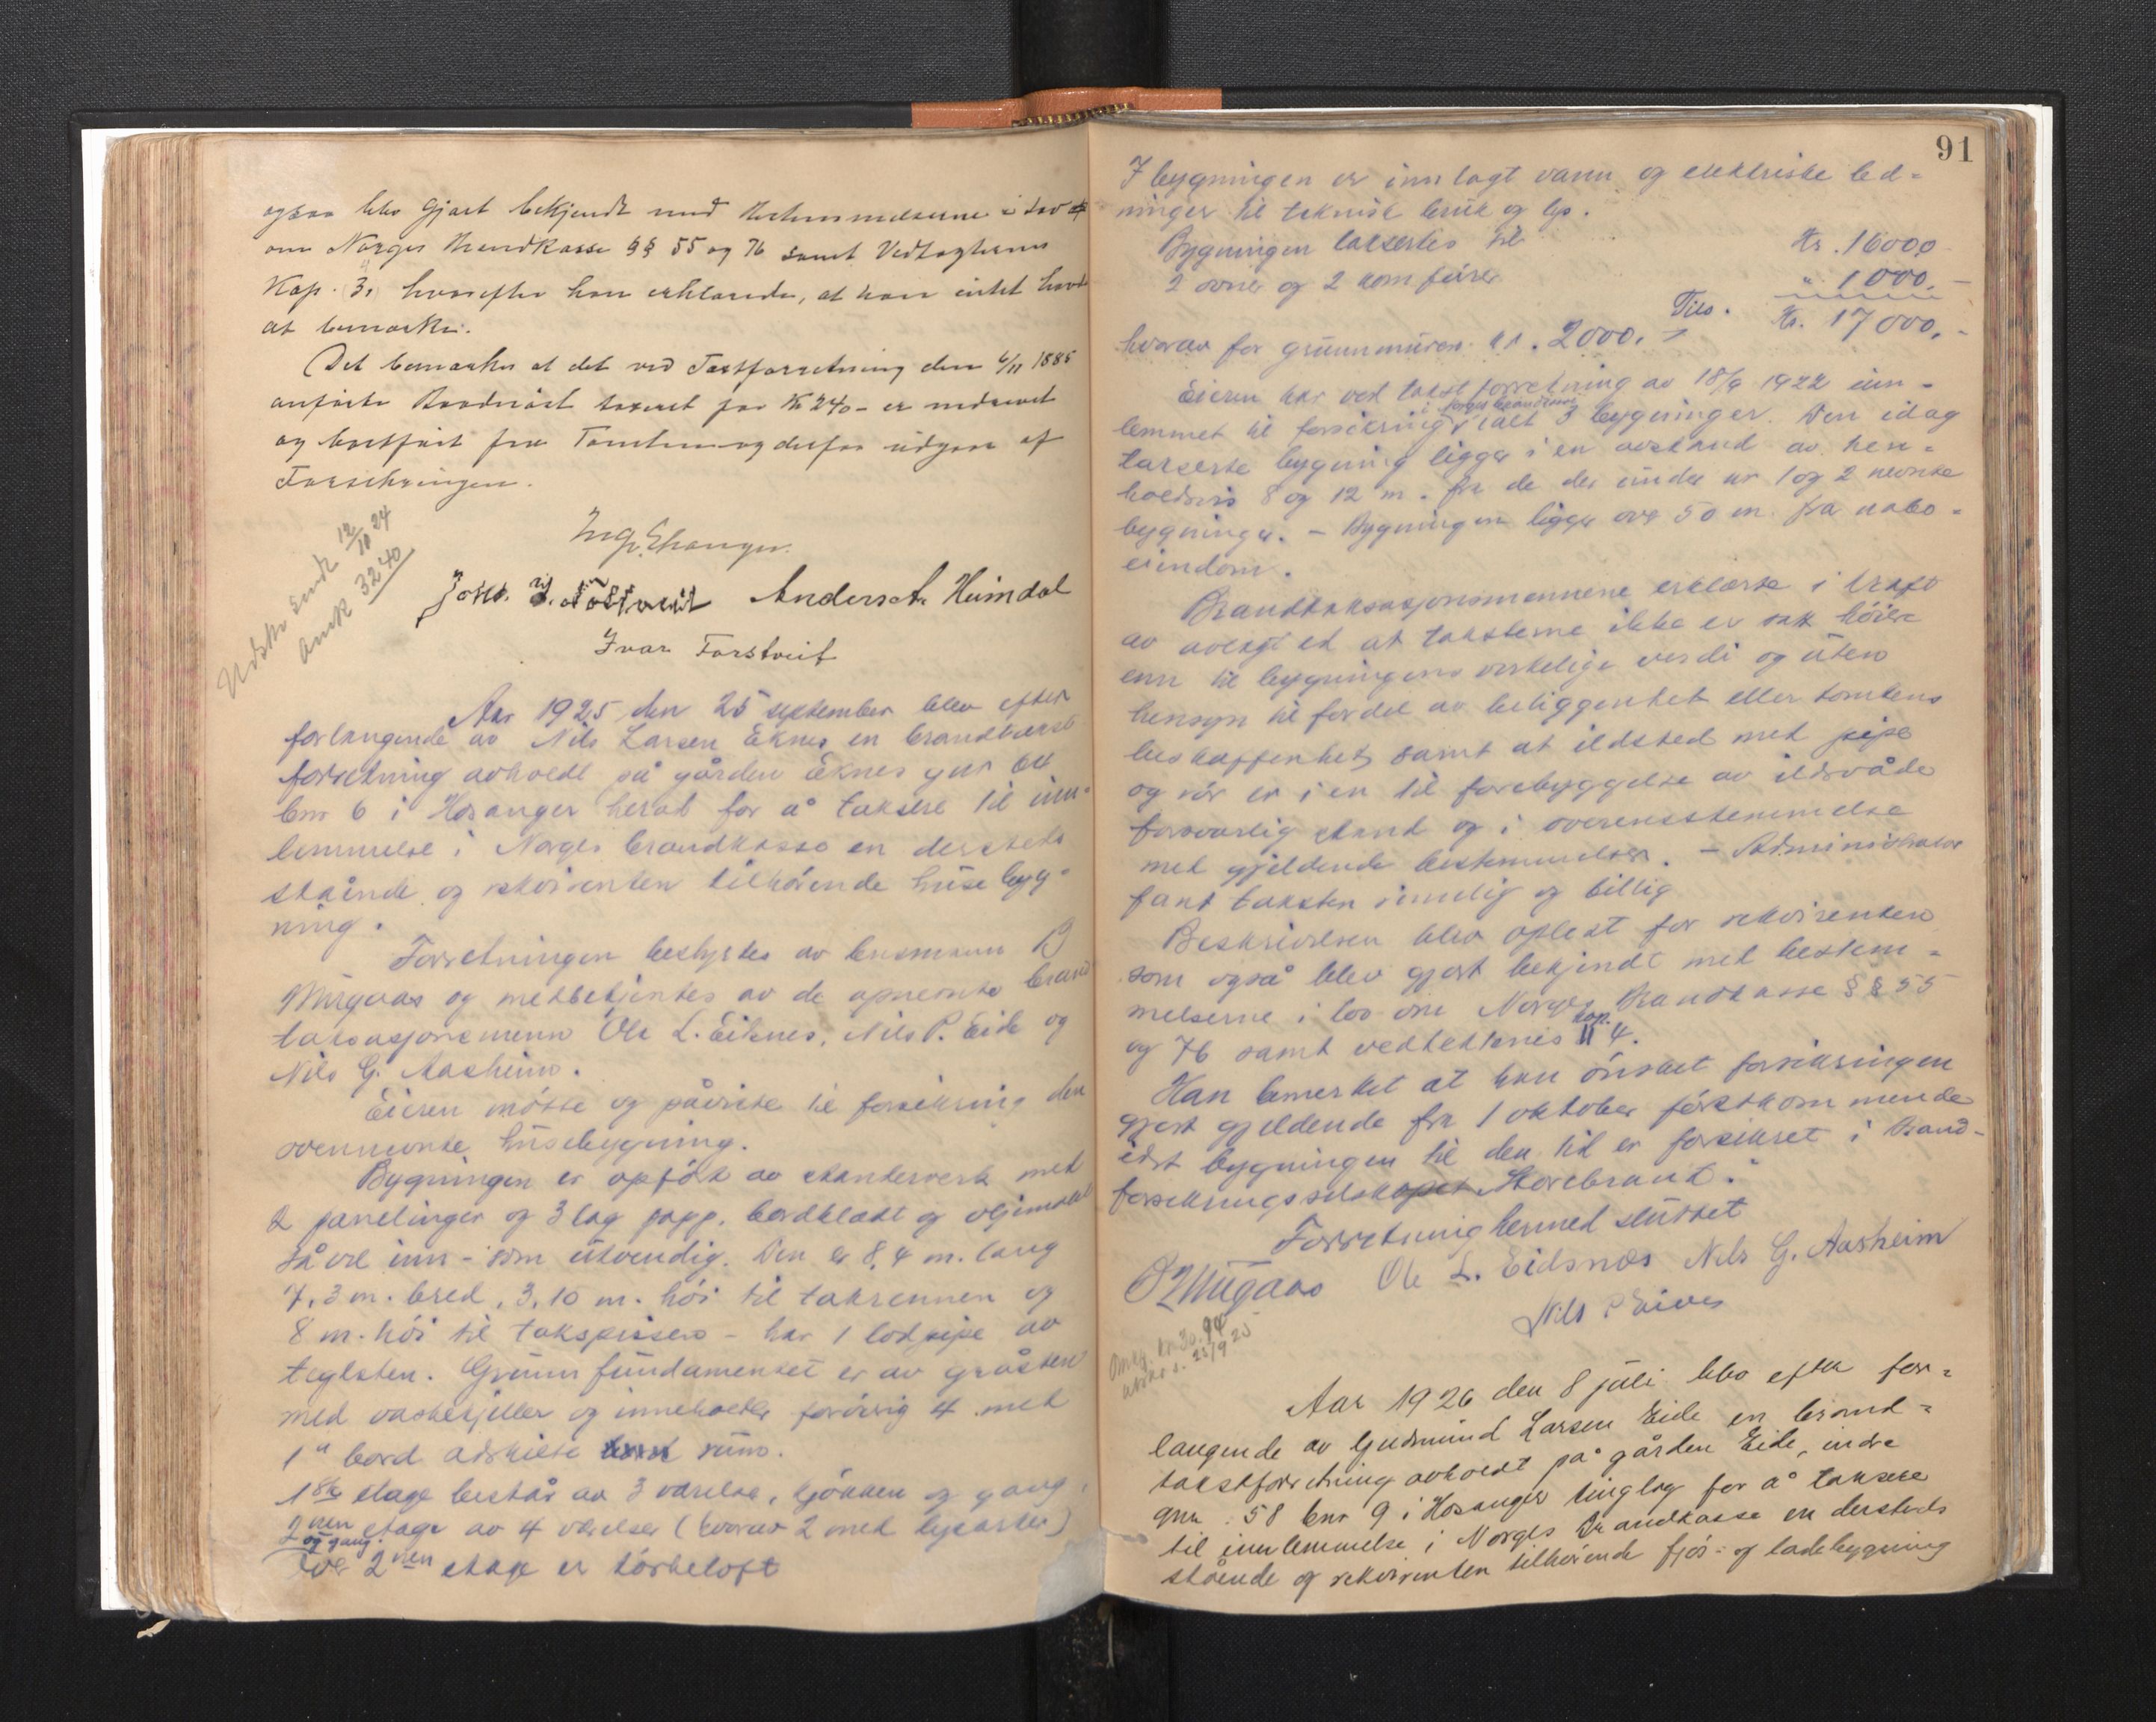 ogsaa blev gjort bekjendt med Bestemmelserne i Lov
om Norges Brandkasse §§ 55 og 76 samt Vedtægternes
Kap. 3, hvorefter han erklærede, at han intet havde
at bemærke.
Det bemærkes at det ved Taxtforretning den 6/11 1885
anførte taxeret for Kr 240 - er nedrevet
og bortført fra Tomten og derfor udgaar af
Forsikringen.
Udskr. sendt 12/10 24
Ank 3240
Anders A. Heimdal
Ivar Forstveit
Aar 1925 den 25 september blev efter
forlangende av Nils Larsen Eknes en brandtakst
forretning avholdt på gården Eknes gnr
bnr 6 i Hosanger herad for å taksere til inn-
lemmelse i Norges brandkasse en dersteds
stående og rekvirenten tilhørende husebyg-
ning.
Forretningen bestyrtes av lensmann B
Mugaas og medbetjentes av de opnevnte brand
taksasjonsmenn Ole L. Eiknes, Nils P. Eide og
Nils G. Aasheim.
Eieren møtte og påviste til forsikring den
ovennevnte husebygning.
Bygningen er opført av standerverk med
2 panelinger og 3 lag papp, bordklædt og oljemalt
såvel inn- som utvendig. Den er 8,4 m. lang
7,3 m. bred, 3,10 m. høi til takrennen og
8 m. høi til takspissen - har 1 lodpipe av
teglsten. Grunnfundamentet er av gråsten
med vaskekjeller og inneholder forøvrig 4 med
1" bord adskilte rum.
1ste etage består av 3 værelse, kjøkken og gang,
2nen etage av 4 værelser (hvorav 2 med
og gang.
Over 2nen etage er tørkeloft
91
I bygningen er innlagt vann og elektriske led-
ninger til teknisk bruk og lys.
Bygningen takseres til Kr. 16000
2 ovner og 2 komfirer " 1000.-
Tils. Kr. 17000,-
hvorav for grunnmuren kr. 2000.-
Eieren har ved takstforretning av 18/9 1922 inn-
i Norges brandkasse
lemmet til forsikring ialt 3 bygninger. Den idag
takserte bygning ligger i en avstand av hen-
holdsvis 8 og 12 m. fra de der under nr 1 og 2 nevnte
bygninger. - Bygningen ligger over 50 m. fra nabo-
eiendom.
Brandtaksasjonsmennene erklærte i kraft
av avlagt ed at taksterne ikke er satt høiere
enn til bygningens virkelige verdi og uten
hensyn til fordel av beliggenhet eller tomtens
beskaffenhet, samt at ildsted med pipe
og rør er i en til forebyggelse av ildsvåde
forsvarlig stand og i overensstemmelse
med gjeldende bestemmelser. - Administrator
fant taksten rimelig og billig
Beskrivelsen blev oplest for rekvirenten
som også blev gjort bekjendt med bestem-
melserne i lov om Norges Brandkasse §§ 55
og 76 samt vedtekternes kap. 4.
Han bemerket at han ønsket forsikringen
gjort gjeldende fra 1 oktober førstkommende
idet bygningen til den tid er forsikret i Brand-
forsikringsselskapet Storebrand."
Forretning hermed sluttet
B Mugaas Ole L. Eidsnes Nils G. Aasheim
Nils P Eide
Anlg. kr 30.94
utskr. s. 25/9 25
Aar 1926 den 8 juli blev efter for-
langende av Gudmund Larsen Eide en brand-
takstforretning avholdt på gården Eide, indre
gnr. 58 bnr 9 i Hosanger tinglag for å taksere
til innlemmelse i Norges Brandkasse en dersteds
stående og rekvirenten tilhørende fjøs- og ladebygning